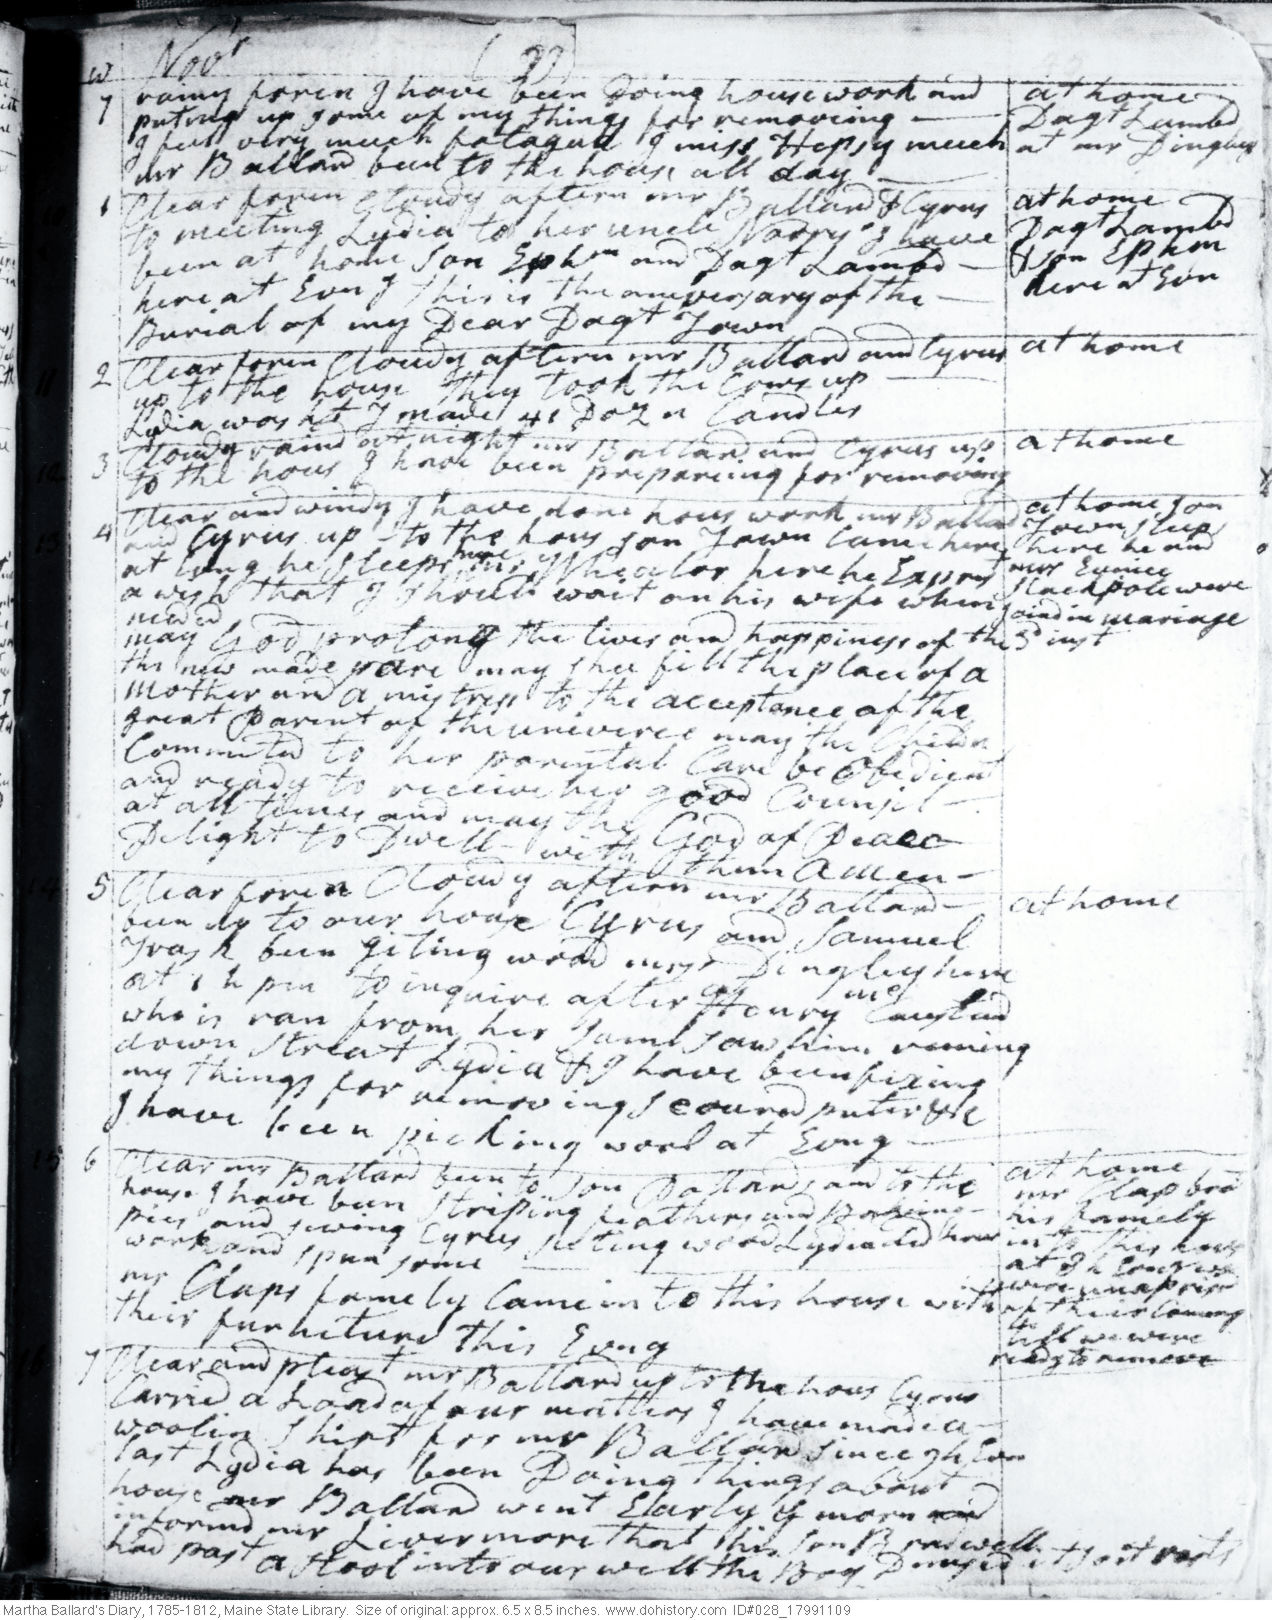 w Novr (99)
7 rainy foren I have been Doing house work and at home
puting up some of my things for removeing Dagt Lambd
I feel very much fatagud I miss Hepsy much at mr Dingleys
mr Ballard been to the house all day
1 Clear foren Cloudy aftern mr Ballard & Cyrus at home
to meeting Lydia to her uncle I have Dagt Lambd
been at home Son Ephm and Dagt Lambd & son Ephm
here at Evng this is the aniversary of the here at Evn
Burial of my Dear Dagt Town
11 2 Clear foren Cloudy aftern mr Ballard and Cyrus at home
up to the house they took the Cows up
Lydia washt I made 41 Dozn Candles
12 3 Cloudy raind at night mr Ballard and Cyrus up at home
to the hous I have been prepareing for removeing
13 4 Clear and windy I have done hous work mr Ballard at home son
and Cyrus up to the hous son Town Came here Town sleeps
at Evng he sleeps here mr Whealor here he Exprest here he and
a wish that I should wait on his wife when mrs Eunice
needed Stackpole were
joind in mariage
may God prolong the lives and happiness of the 3d inst
this new made pare may shee fill the place of a
Mother and a mistress to the acceptance of the
great Parent of the univerce may the Childn
Commited to her parental Care be Obedient
and ready to receive her good Counsil
at all times and may the God of Peace
Delight to Dwell with them Amen
14 5 Clear foren Cloudy aftern mr Ballard at home
been up to our house Cyrus and Samuel
Trask been giting wood mrs Dingley here
at 1 h pm to inquire after Henry
who is ran from her Saml saw him runing
down Streat Lydia & I have been fixing
my things for removeing Scoured puter &c
I have been picking wool at Evng
15 6 Clear mr Ballard been to son Ballards and to the at home
house I have been striping feathers and Bakeing mr Clap brot
pies and sewing Cyrus giting wood Lydia did hous his famely
work and spun some into this hous
mr Claps famely Came in to this house with at 7 h Evng we
their furniture this Evng were unaprisd
of their Comeing
till we were
ready to remove
16 7 Clear and pleast mr Ballard up to the hous Cyrus
Carried a Load of our matters I have made a
woolin shirt for mr Ballard since 9 h Evn
last Lydia has been Doing things about
house mr Ballard went Early ys morn and
informd mr Livermore that his son Bradwell
had past a stool into our well the Boy Denyed it